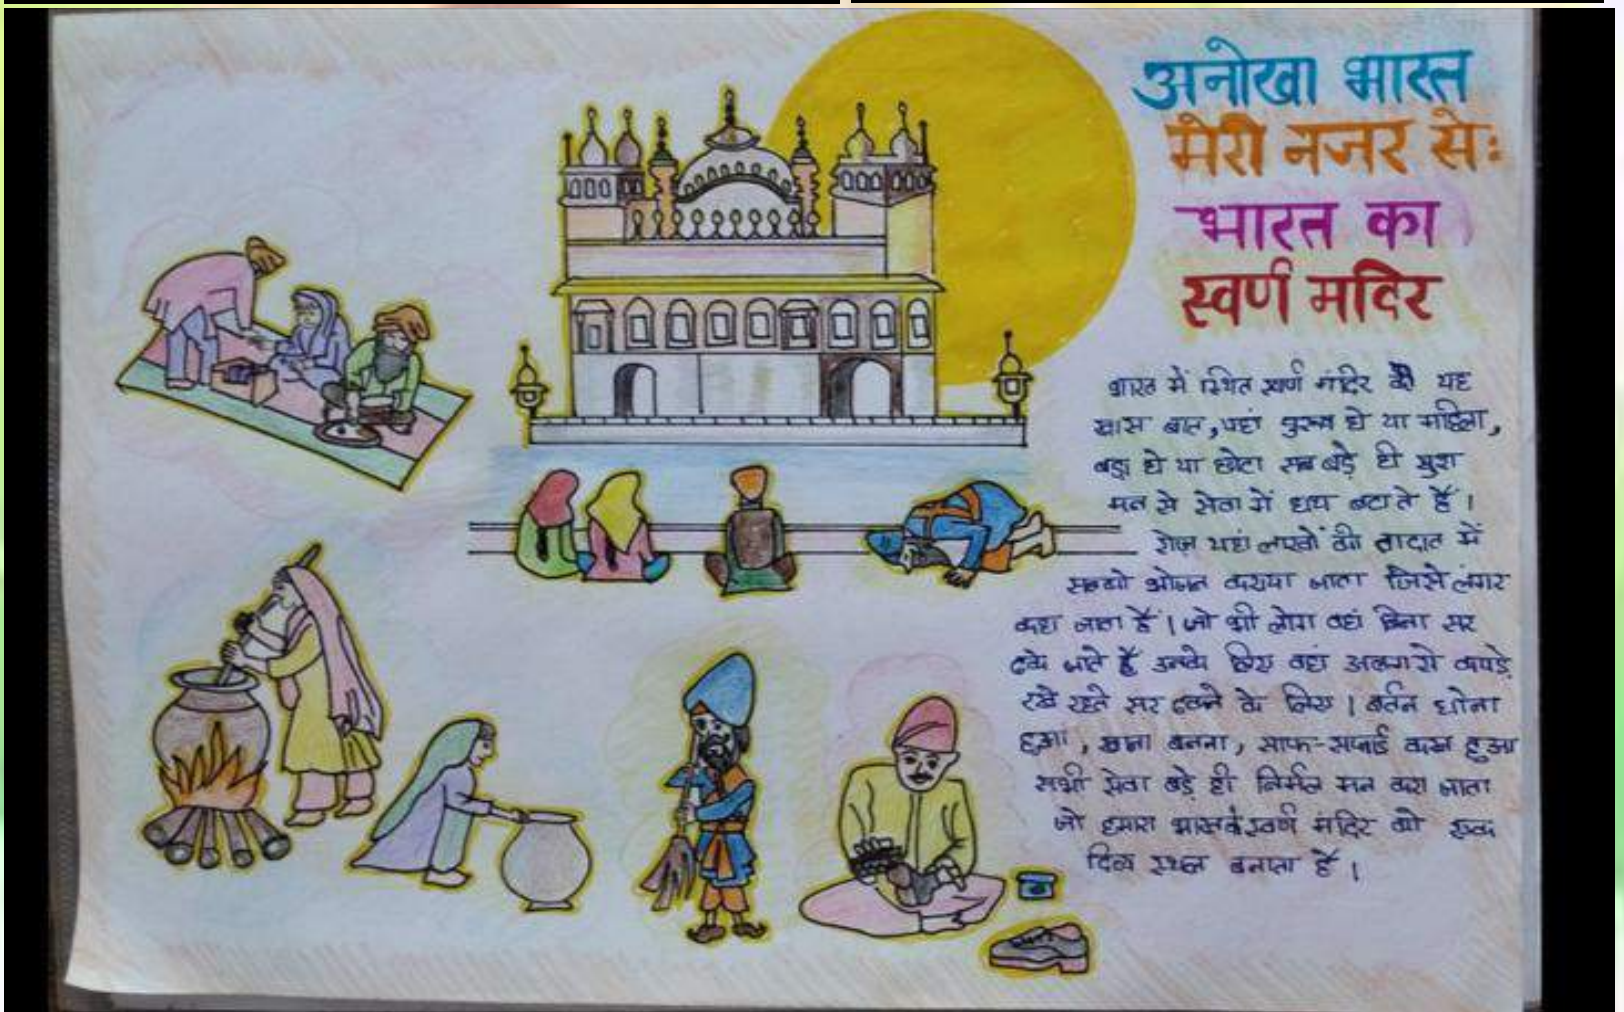 अनोखा भारत
मेरी नजर से:
भारत का
स्वर्ण मंदिर
भारत में स्थित स्वर्ण मंदिर की यह
खास बात, यहां पुरुष हो या महिला,
बड़ा हो या छोटा सब बड़े ही खुश
मन से सेवा में हाथ बटाते हैं।
रोज़ यहां लाखों की तादात में
सबको भोजन कराया जाता जिसे लंगर
कहा जाता हैं। जो भी लोग वहां बिना सर
ढके जाते हैं उनके लिए वहां अलग से कपड़े
रखे रहते सर ढकने के लिए। बर्तन धोना
हुआ, खाना बनना, साफ-सफाई करना हुआ
सभी सेवा बड़े ही निर्मल मन करा जाता
जो हमारा भारत के स्वर्ण मंदिर को एक
दिव्य स्थल बनाता हैं।